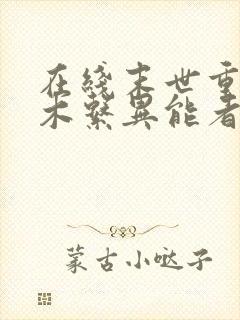 在綫末世重
木繫異能者
蒙古小哒子